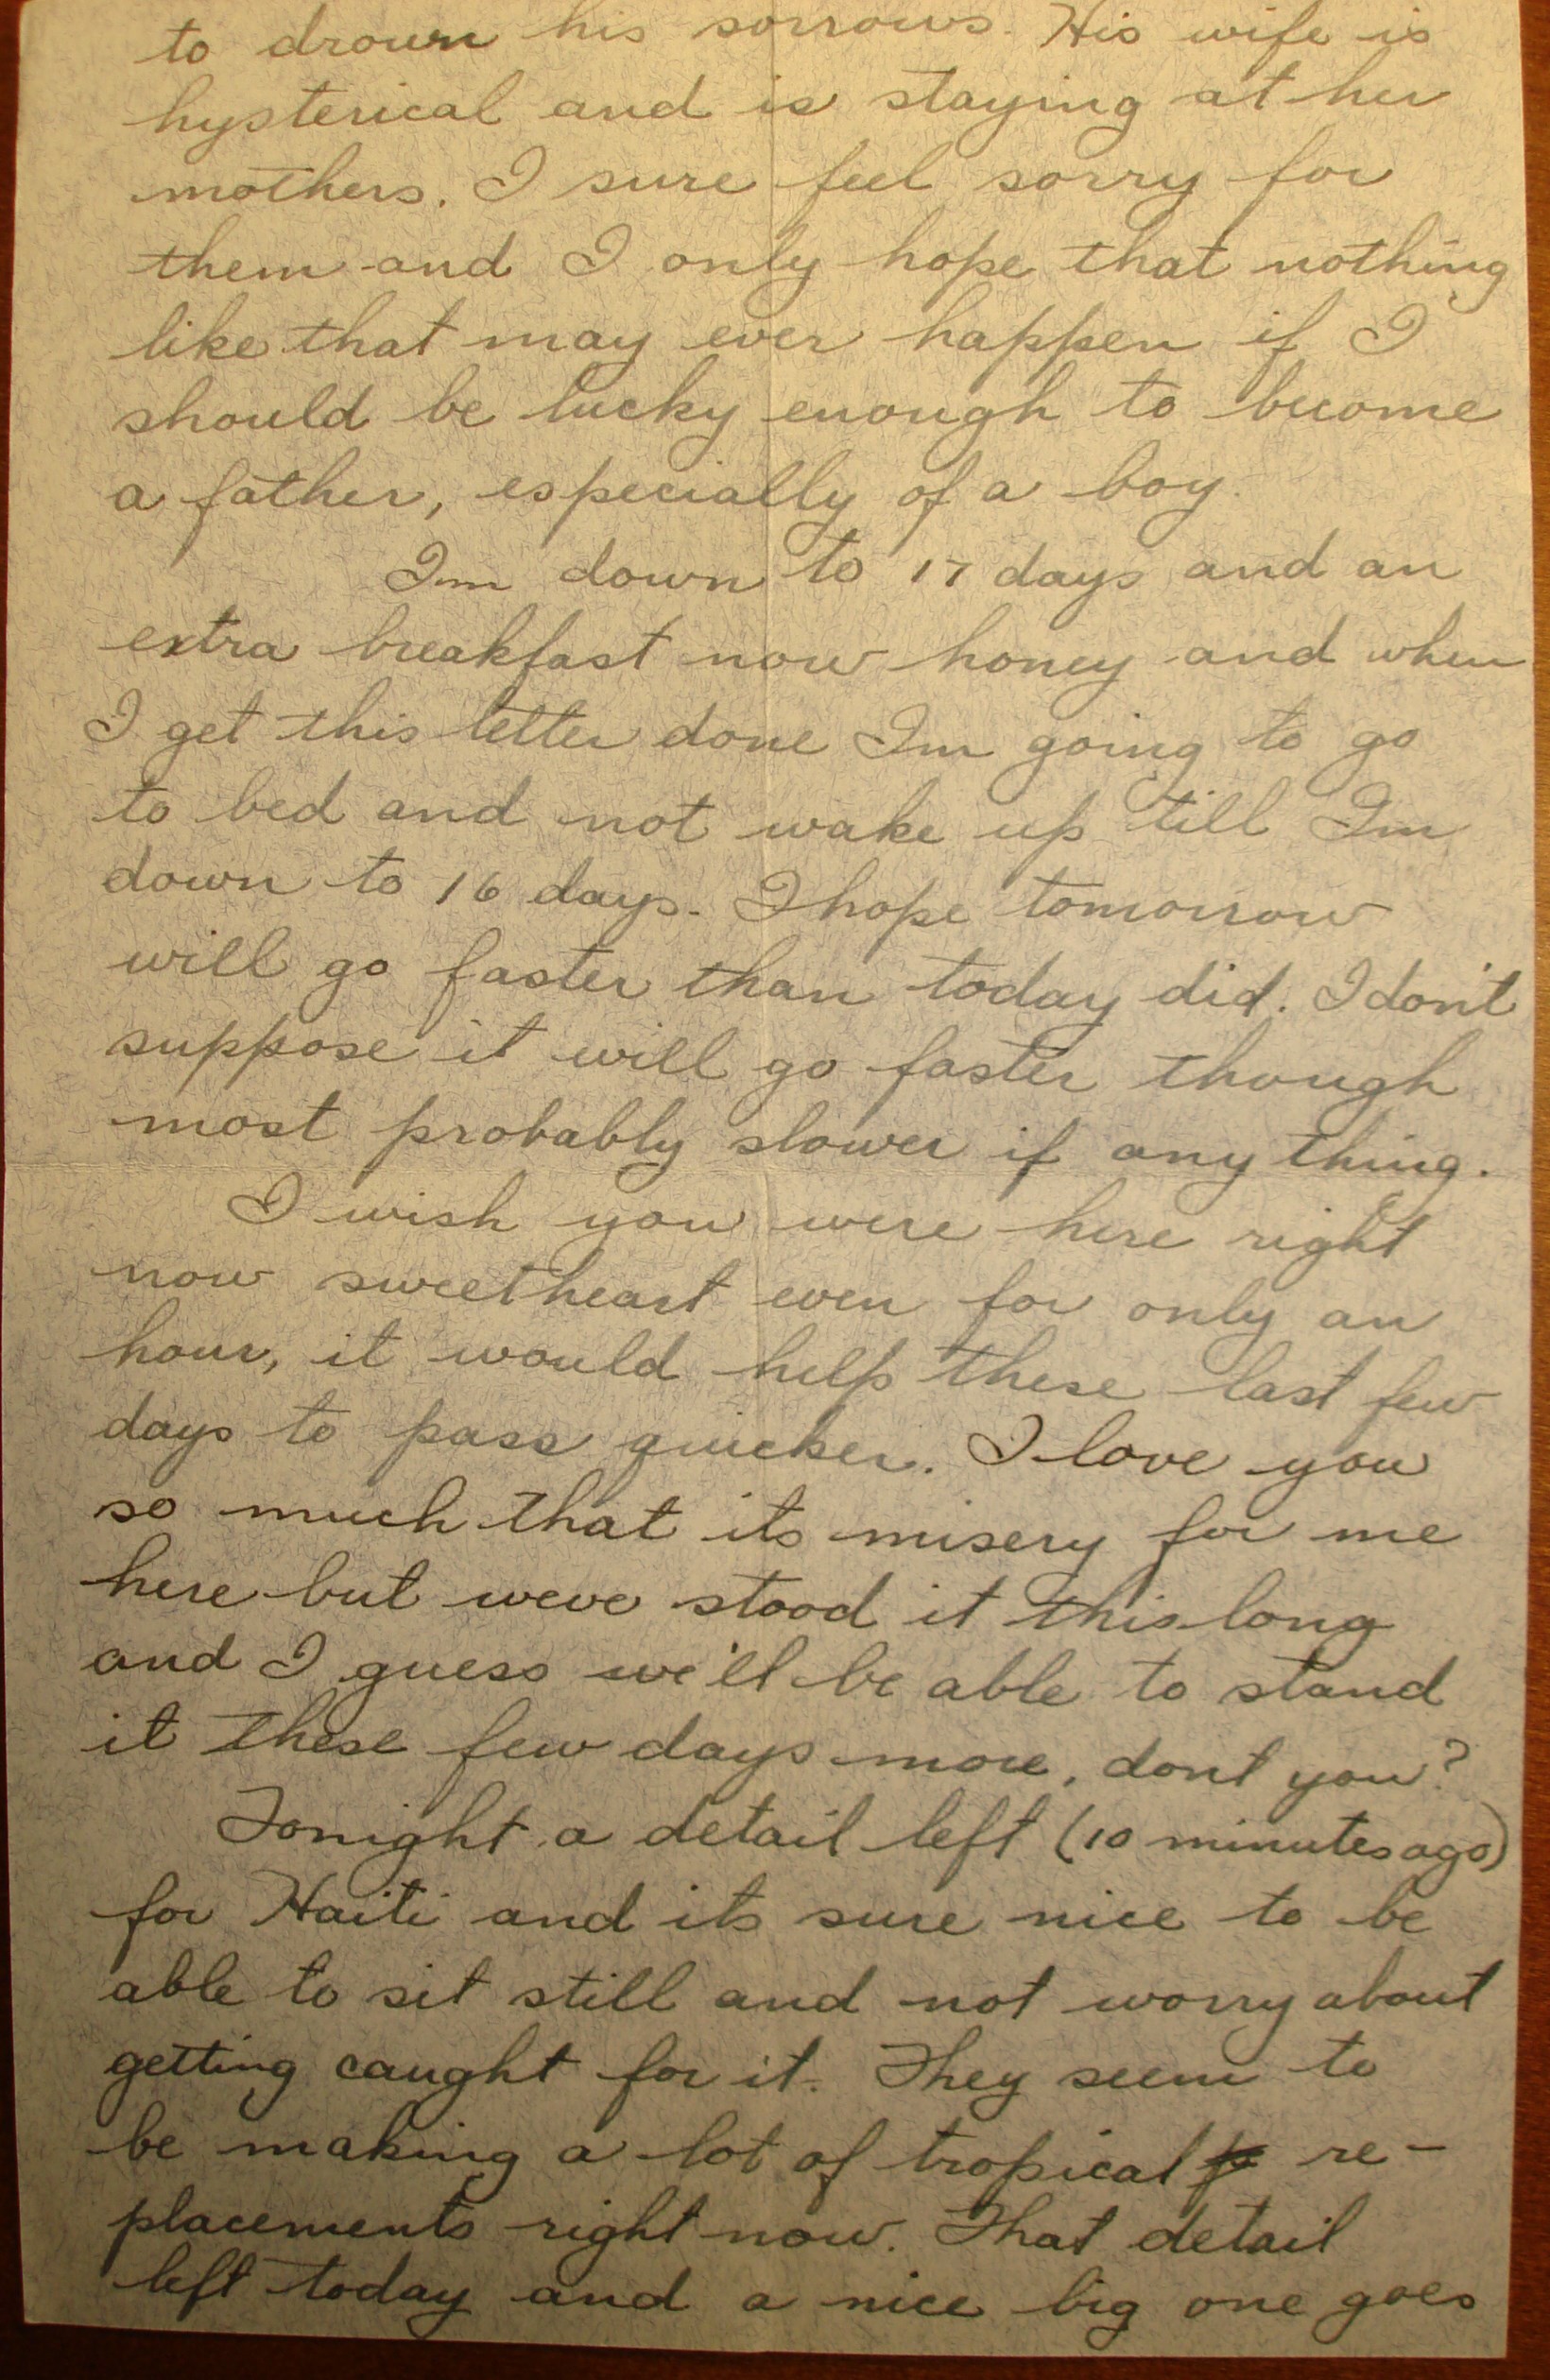 to drown his sorrows. His wife is
hysterical and is staying at her
mothers. I sure feel sorry for
them and I only hope that nothing
like that may ever happen if I
should be lucky enough to become
a father, especially of a boy.
Im down to 17 days and an
extra breakfast now honey and when
I get this letter done Im going to go
to bed and not wake up till Im
down to 16 days. I hope tomorrow
will go faster than today did. I don't
suppose it will go faster though
most probably slower if any thing.
I wish you were here right
now sweetheart even for only an
hour, it would help these last few
days to pass quicker. I love you
so much that its misery for me
here but weve stood it this long
and I guess we'll be able to stand
it these few days more, dont you?
Tonight a detail left (10 minutes ago)
for Haiti and its sure nice to be
able to sit still and not worry about
getting caught for it. They seem to
be making a lot of tropical re-
placements right now. That detail
left today and a nice big one goes